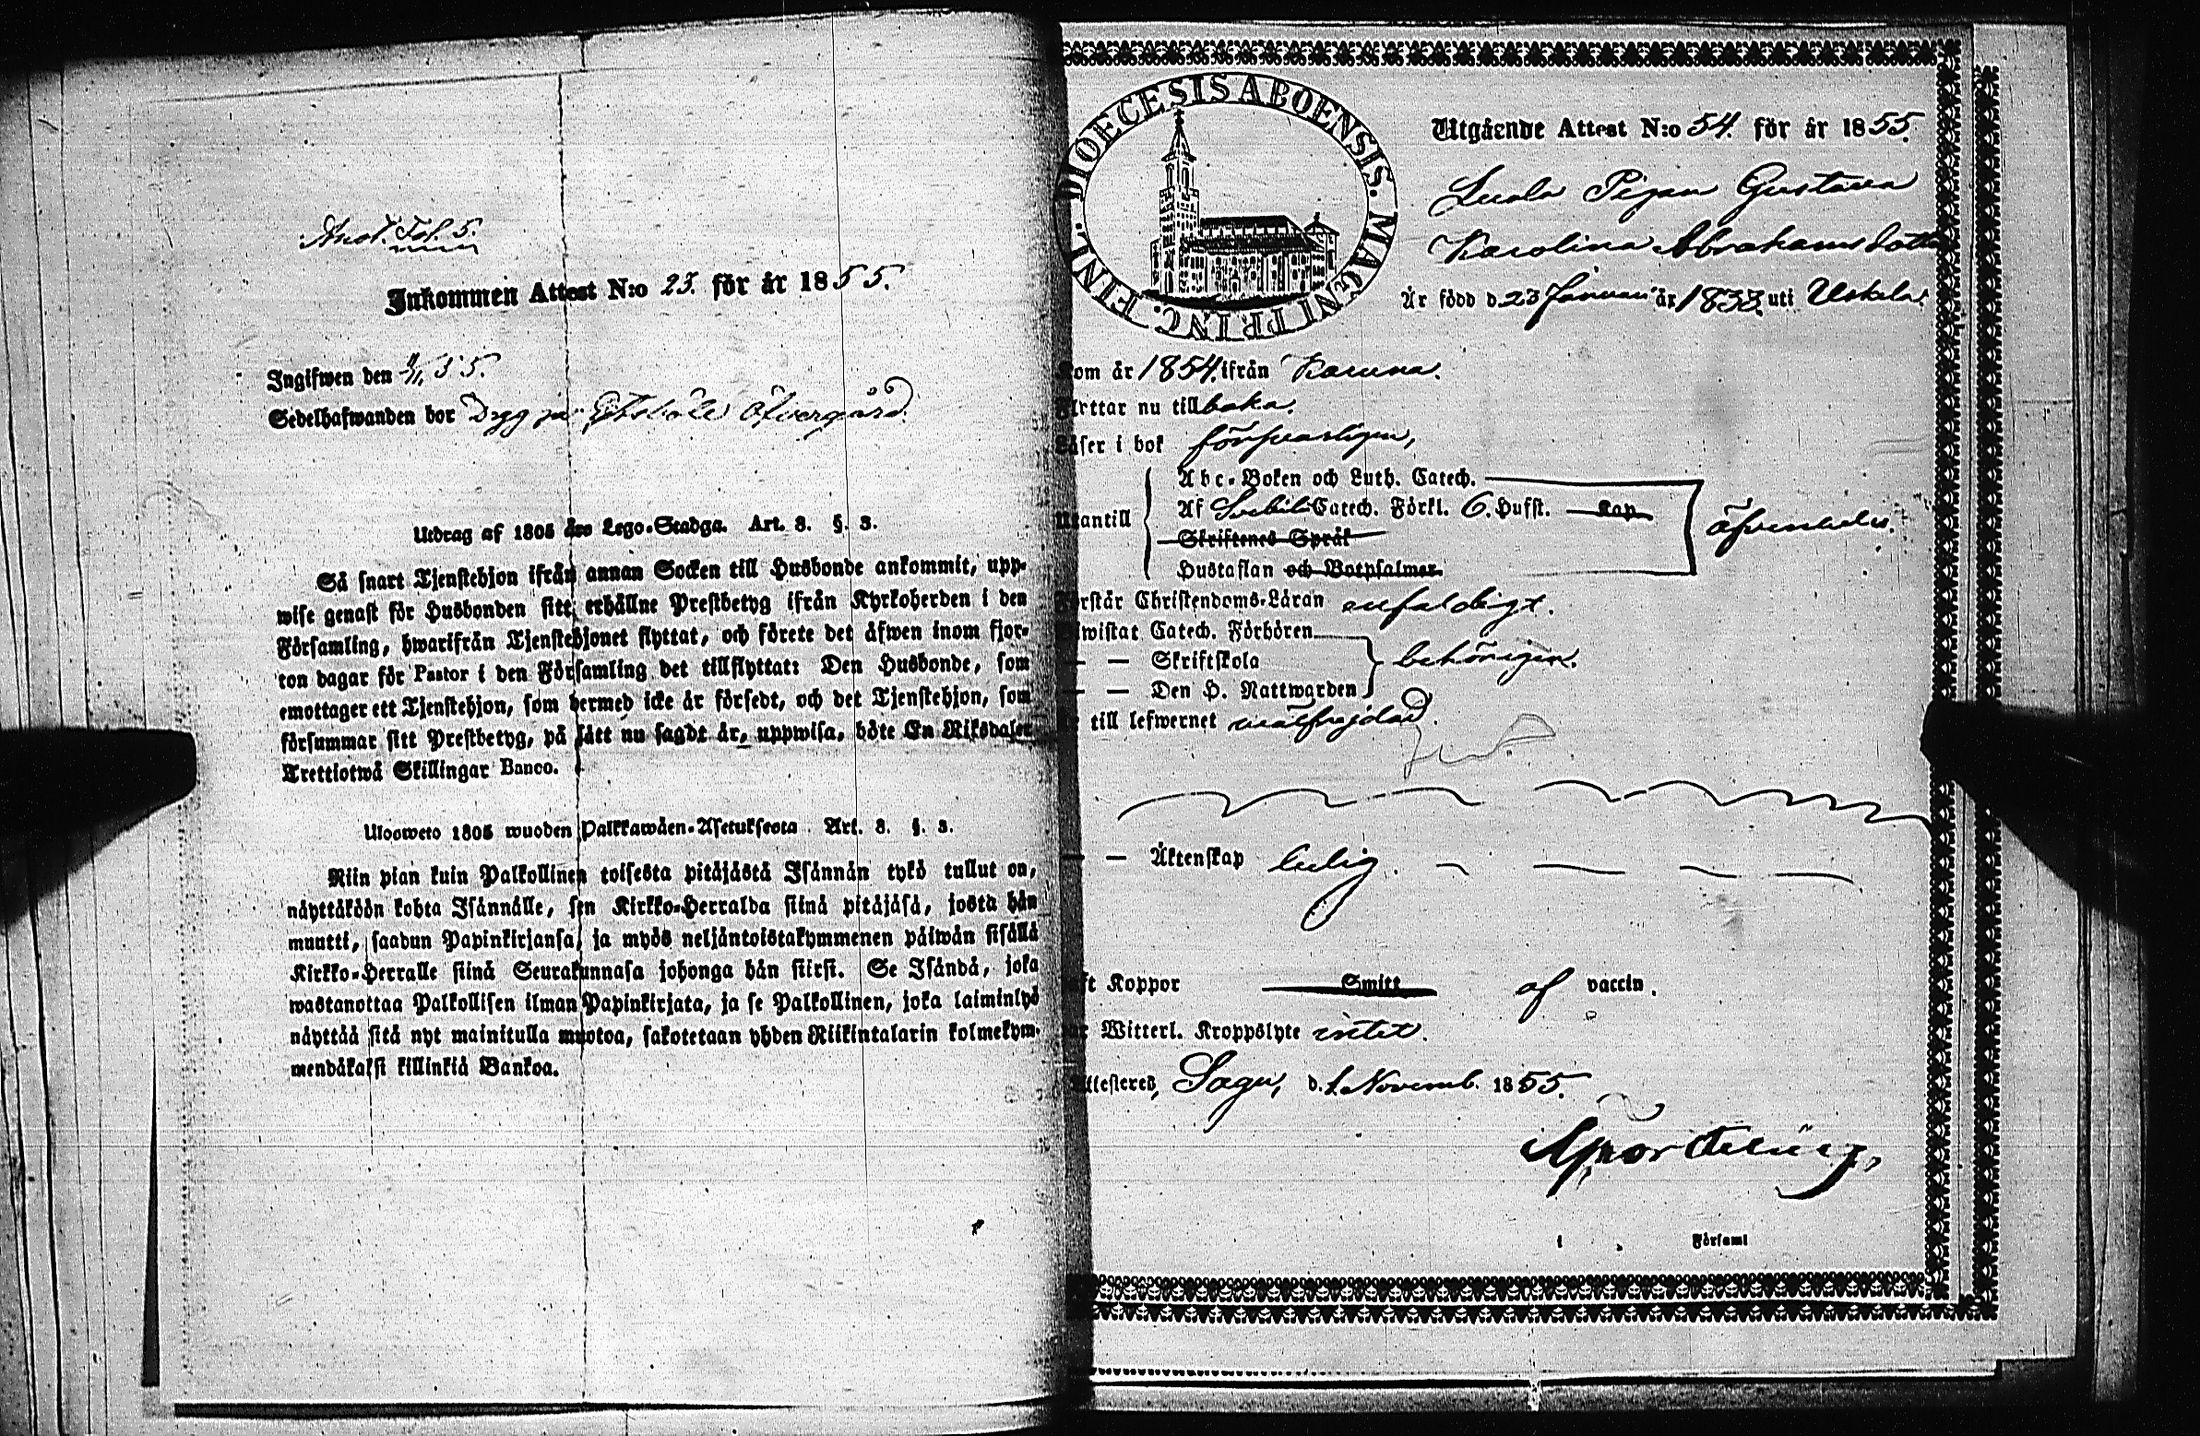 Anot. Fol. 5.
Inkommen Attest N:o 23. för år 1855.
Ingifwen den 4/11 55.
Sedelhafwanden bor på öfvergård.
Utdrag af 1805 års Lego-Stadga. Art. 3. §. 3.
Så snart Tjenstehjon ifrån annan Socken till Husbonde ankommit, upp-
wise genast för Husbonden sitt erhållne Prestbetyg ifrån Kyrkoherden i den
Församling, hwarifrån Tjenstehjonet flyttat, och förete det äfwen inom fjor-
ton dagar för Pastor i den Församling det tillflyttat: Den Husbonde, som
emottager ett Tjenstehjon, som hermed icke är försedt, och det Tjenstehjon, som
försummar sitt Prestbetyg, på sätt nu sagdt är, uppwisa, böte En Riksdaler
Trettiotwå Skillingar Banco.
Ulosweto 1805 wuoden Palkkawäen-Asetuksesta. Art. 3. §. 3.
Niin pian kuin Palkollinen toisesta pitäjästä Isännän tykö tullut on,
näyttäköön kohta Isännälle, sen Kirkko-Herralda siinä pitäjäsä, josta hän
muutti, saadun Papinkirjansa, ja myös neljäntoistakymmenen päiwän sisällä
Kirkko-Herralle siinä Seurakunnasa johonga hän siirsi. Se Isändä, joka
wastanottaa Palkollisen ilman Papinkirjata, ja se Palkollinen, joka laiminlyö
näyttää sitä nyt mainitulla muotoa, sakotetaan yhden Riikintalarin kolmekym-
mendäkaksi killinkiä Bankoa.
FINL. DIOECESIS ABOENSIS. MAGNI PRINC.
Utgående Attest N:o 54. för år 1855.
Pigan Gustava
Karolina Abrahamsdotter
Är född d. 23 Januari år 1833. uti Uskela.
Kom år 1854. ifrån Karuna.
Flyttar nu tillbaka.
Läser i bok försvarligen,
Utantill
Abc-Boken och Luth. Catech.
Af Svebil. Catech. Förkl. 6. Hufst. Kap
Skriftenes Språk
Hustaflan och Botpsalmer.
äfvenledes.
Förstår Christendoms-Läran enfaldigt.
Biwistat Catech. Förhören
— — Skriftskola
— — Den H. Nattwarden
behörigen.
till lefwernet välfrejdad.
— — Äktenskap ledig.
Haft Koppor Smitt af vaccin.
Har Witterl. Kroppslyte intet.
Attesteras, Sagu, d. 1. Novemb. 1855.
i Församl